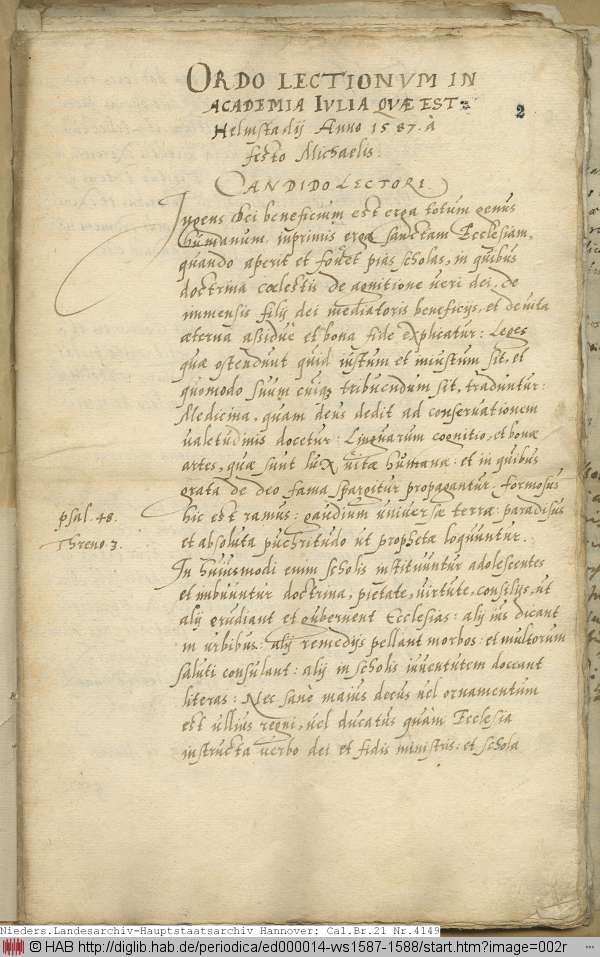 ORDO LECTIONVM IN
ACADEMIA IVLIA QVÆ EST
2
Helmstadij Anno 1587. à
festo Michaelis.
CANDIDO LECTORI.
Ingens dei beneficium est erga totum genus
humanum, inprimis erga sanctam Ecclesiam,
quando aperit et fouet pias scholas, in quibus
doctrina cœlestis de agnitione ueri dei, de
immensis filij dei mediatoris beneficijs, et de uita
æterna assiduè et bona fide explicatur: Leges
quæ ostendunt quid iustum et iniustum sit, et
quomodo suum cuiq; tribuendum sit, traduntur:
Medicina, quam deus dedit ad conseruationem
ualetudinis docetur: Linguarum cognitio, et bonæ
artes, quæ sunt lux uitæ humanæ: et in quibus
grata de deo fama spargitur propagantur. formosus
Psal. 48.
hic est ramus: gaudium uniuersæ terræ: paradisus
Threno 3.
et absoluta puchritudo ut prophetæ loquuntur.
In huiusmodi enim scholis instituuntur adolescentes
et imbuuntur doctrina, pietate, uirtute, consilijs, ut
alij erudiant et gubernent Ecclesias: alij ius dicant
in urbibus: alij remedijs pellant morbos: et multorum
saluti consulant: alij in scholis iuuentutem doceant
literas: Nec sanè maius decus uel ornamentum
est ullius regni, uel ducatus quàm Ecclesia
instructa uerbo dei et fidis ministris: et schola
Nieders.Landesarchiv-Hauptstaatsarchiv Hannover: Cal.Br.21 Nr.4149
© HAB http://diglib.hab.de/periodica/ed000014-ws1587-1588/start.htm?image=002r